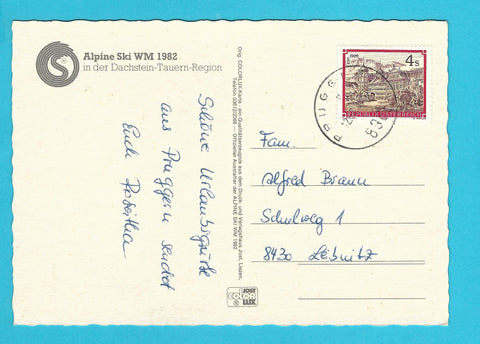 Alpine Ski WM 1982
in der Dachstein-Tauern-Region
Schöne Urlaubsgrüße
aus Pruggern sendet
Euch Roswitha
Orig. COLORLUX-Karte - ein Qualitätserzeugnis aus dem Druck- und Verlagshaus Jost, Liezen,
Offizieller Ausstatter der ALPINE SKI WM 1982
JOST
COLOR
LUX
4 S
REPUBLIK ÖSTERREICH
PRUGGERN
Fam.
Alfred Braun
Schulweg 1
8430 Leibnitz